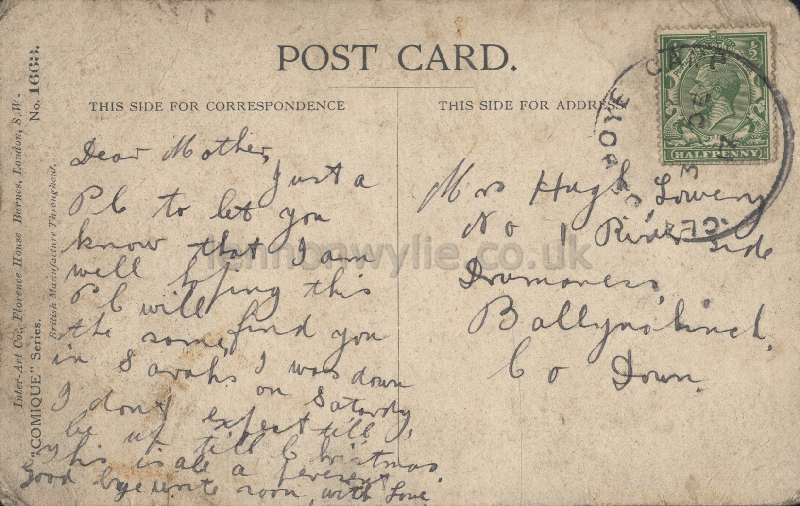 POST CARD.
THIS SIDE FOR CORRESPONDENCE
THIS SIDE FOR ADDRESS
Inter-Art Co., Florence House Barnes, London, S.W.
British Manufacture Throughout.
"COMIQUE" Series.
No. 1663.
Dear Mother,
Just a
PC to let you
know that I am
well hoping this
PC will find you
the same
in Sarahs I was down
on Satardy,
I dont expect till
be up till Christmas,
this is all a peresent
Good bye write soon, with Love
Mrs Hugh Lowery
No 1 River Side
Drumaness
Ballynahinch,
Co Down.
HALFPENNY
CAMP
DE
lennonwylie.co.uk